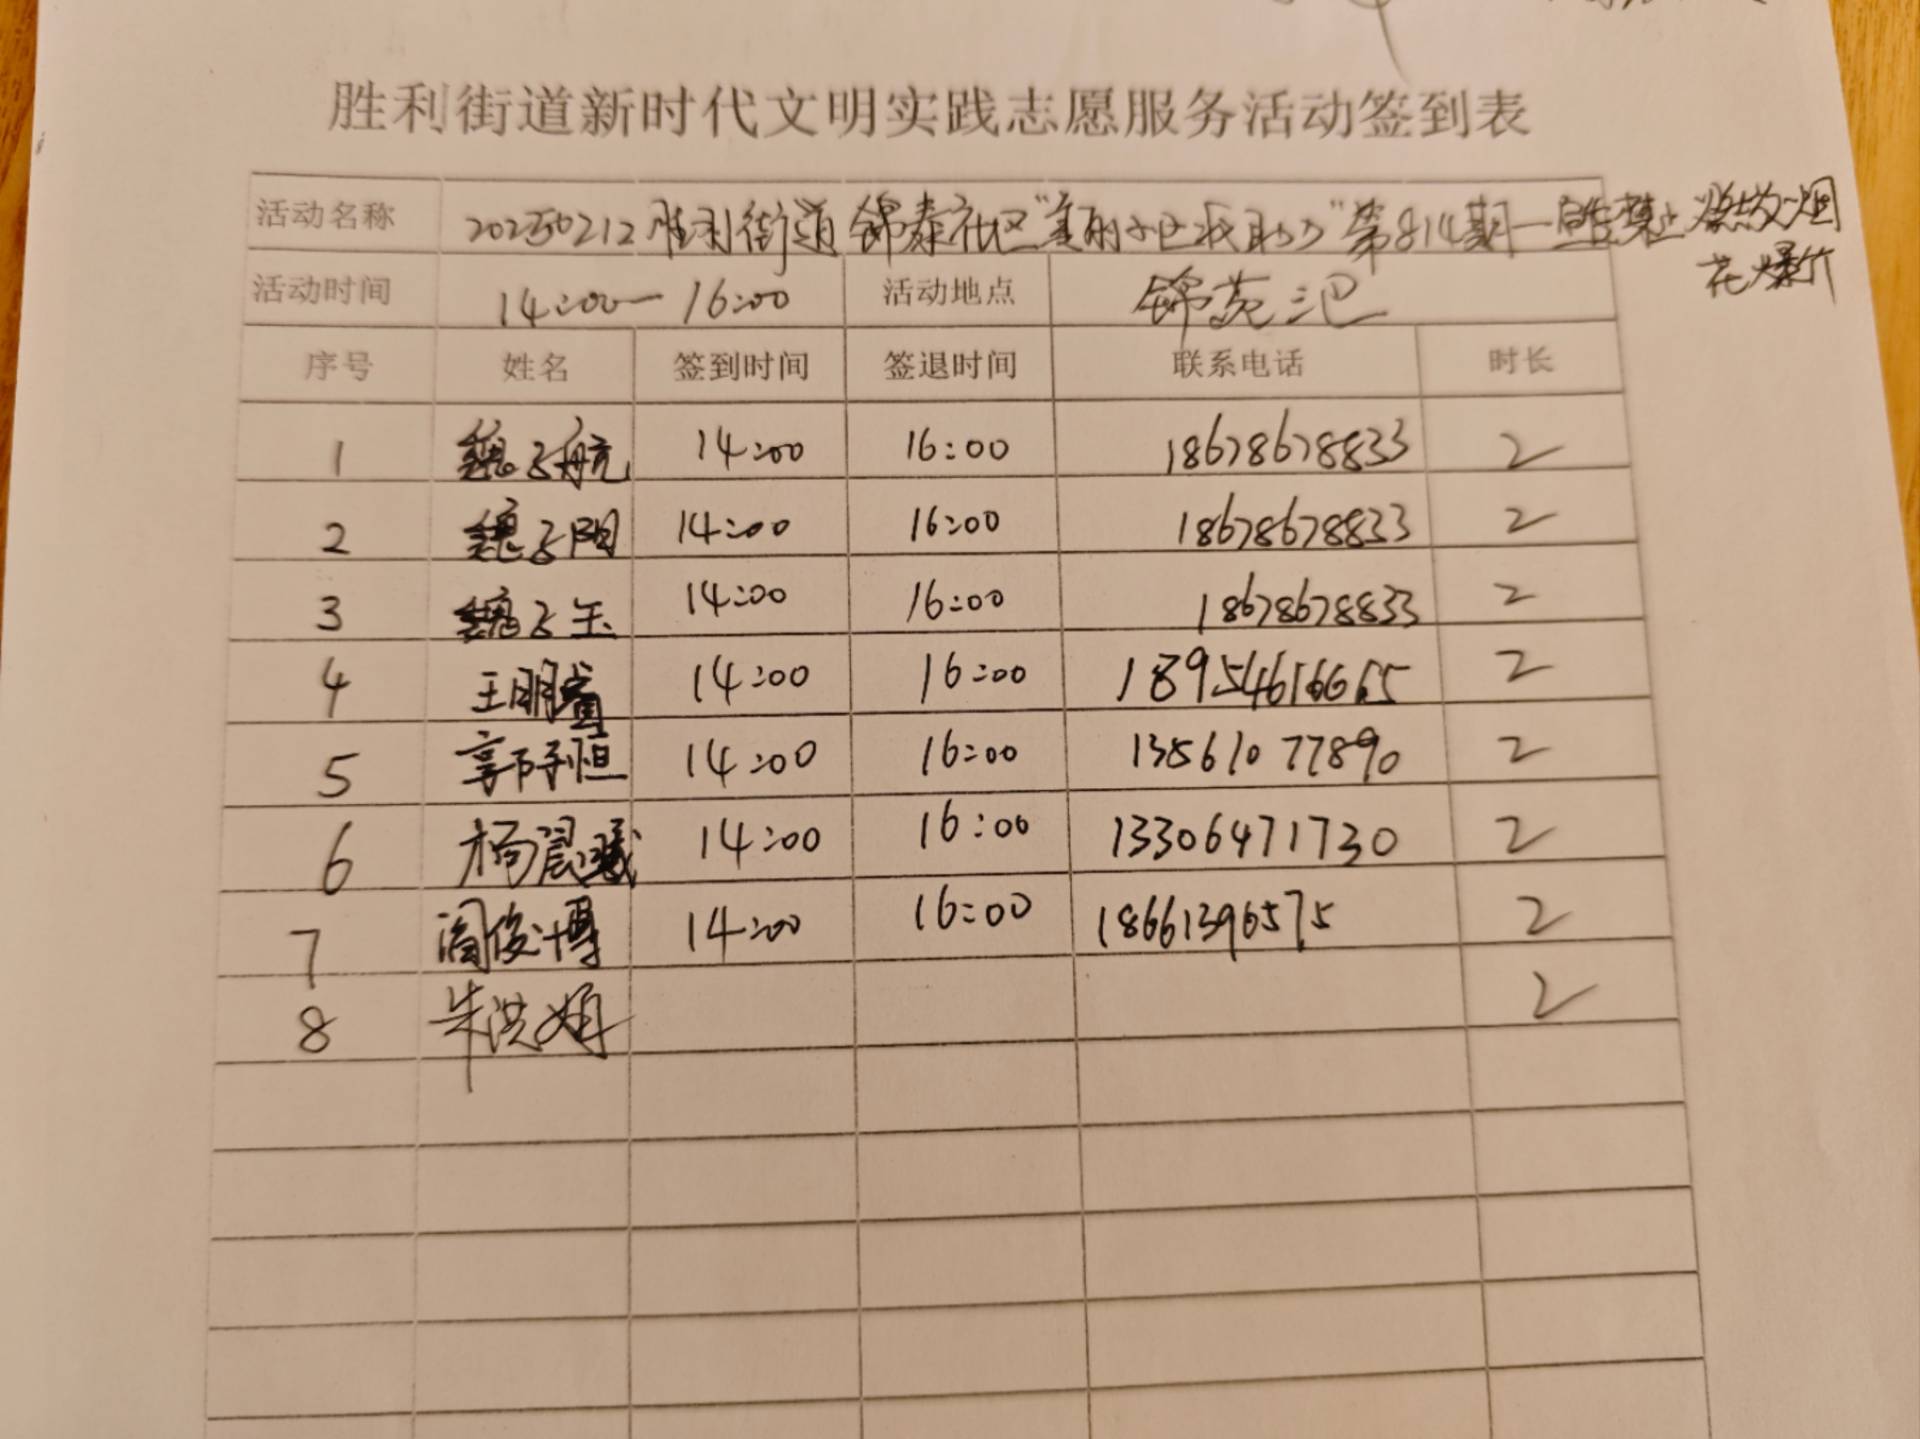 胜利街道新时代文明实践志愿服务活动签到表
活动名称 20250212胜利街道锦泰社区"美丽小区我助力"第814期—宣传禁止燃放烟
花爆竹
活动时间 14:00—16:00 活动地点 锦苑三区
序号 姓名 签到时间 签退时间 联系电话 时长
1 魏子航 14:00 16:00 18678678833 2
2 魏子阳 14:00 16:00 18678678833 2
3 魏子玉 14:00 16:00 18678678833 2
4 王明 14:00 16:00 2
5 郭梓恒 14:00 16:00 13561077890 2
6 杨晨曦 14:00 16:00 13306471730 2
7 阎俊博 14:00 16:00 18661396575 2
8 朱洪娟 2